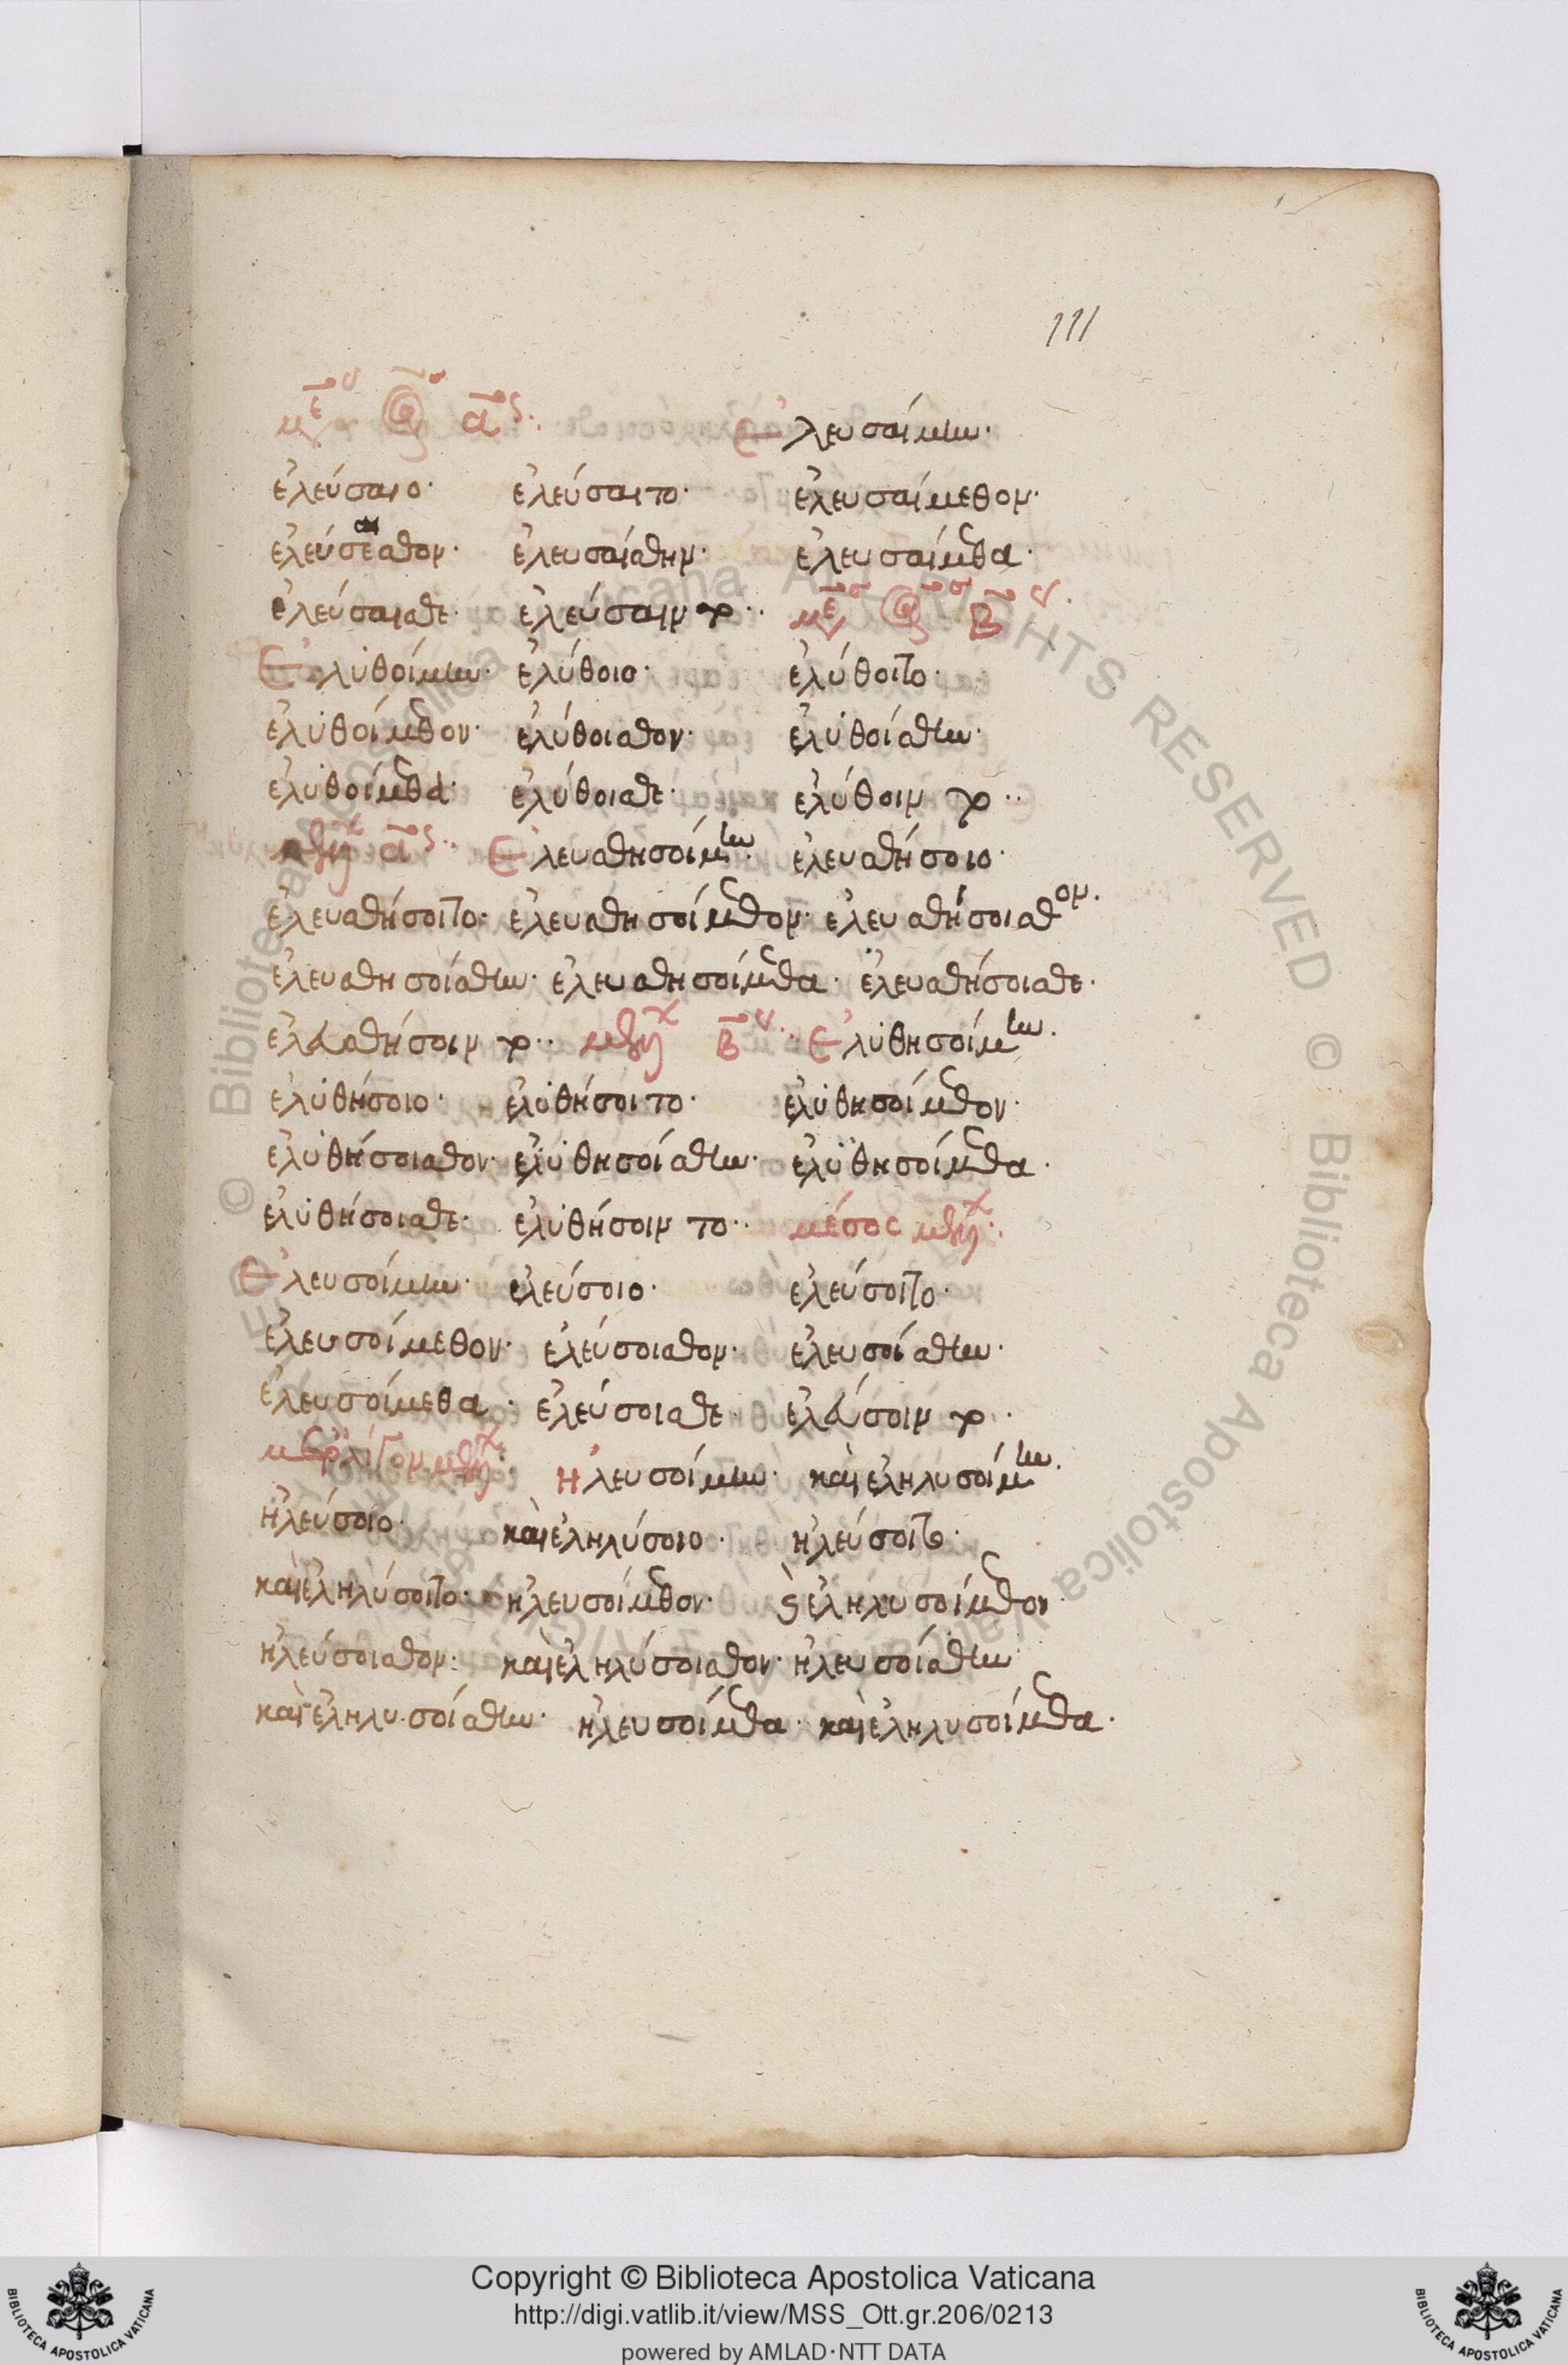 111
ἐλευσαίμην·
ἐλεύσαιο· ἐλεύσαιτο· ἐλευσαίμεθον·
ἐλεύσεασθον· ἐλευσαίσθην· ἐλευσαίμεθα·
ἐλεύσαισθε· ἐλεύσαιντο··
ἐλυθοίμην· ἐλύθοιο· ἐλύθοιτο·
ἐλυθοίμεθον· ἐλύθοισθον· ἐλυθοίσθην·
ἐλυθοίμεθα· ἐλύθοισθε· ἐλύθοιντο··
ἐλευσθησοίμην· ἐλευσθήσοιο·
ἐλευσθήσοιτο· ἐλευσθησοίμεθον· ἐλευσθήσοισθον·
ἐλευσθησοίσθην· ἐλευσθησοίμεθα· ἐλευσθήσοισθε·
ἐλευσθήσοιντο·· ἐλυθησοίμην·
ἐλυθήσοιο· ἐλυθήσοιτο· ἐλυθησοίμεθον·
ἐλυθήσοισθον· ἐλυθησοίσθην· ἐλυθησοίμεθα·
ἐλυθήσοισθε· ἐλυθήσοιντο·· μέσος
ἐλευσοίμην· ἐλεύσοιο· ἐλεύσοιτο·
ἐλευσοίμεθον· ἐλεύσοισθον· ἐλευσοίσθην·
ἐλευσοίμεθα· ἐλεύσοισθε· ἐλεύσοιντο·
ἠλευσοίμην· καὶ ἐληλυσοίμην·
ἠλεύσοιο· καὶ ἐληλύσοιο· ἠλεύσοιτο·
καὶ ἐληλύσοιτο· ἠλευσοίμεθον· καὶ ἐληλυσοίμεθον
ἠλεύσοισθον· καὶ ἐληλύσοισθον· ἠλευσοίσθην
καὶ ἐληλυσοίσθην· ἠλευσοίμεθα· καὶ ἐληλυσοίμεθα·
Copyright © Biblioteca Apostolica Vaticana
http://digi.vatlib.it/view/MSS_Ott.gr.206/0213
powered by AMLAD·NTT DATA